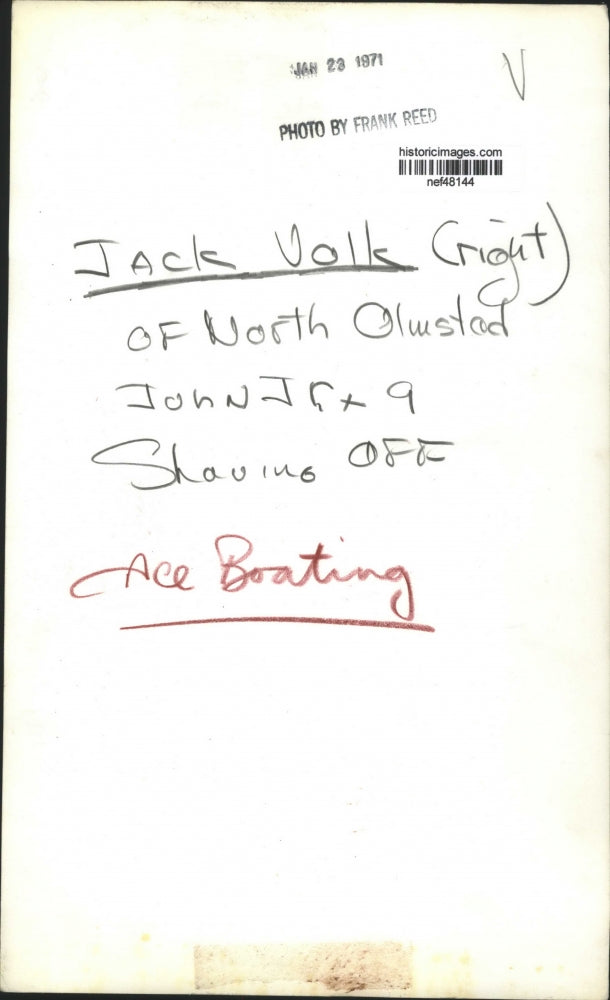 JAN 23 1971
V
PHOTO BY FRANK REED
historicimages.com
nef48144
JACK Volk (right)
OF North Olmsted
JOHN JR + 9
Shaving OFF
Ace Boating